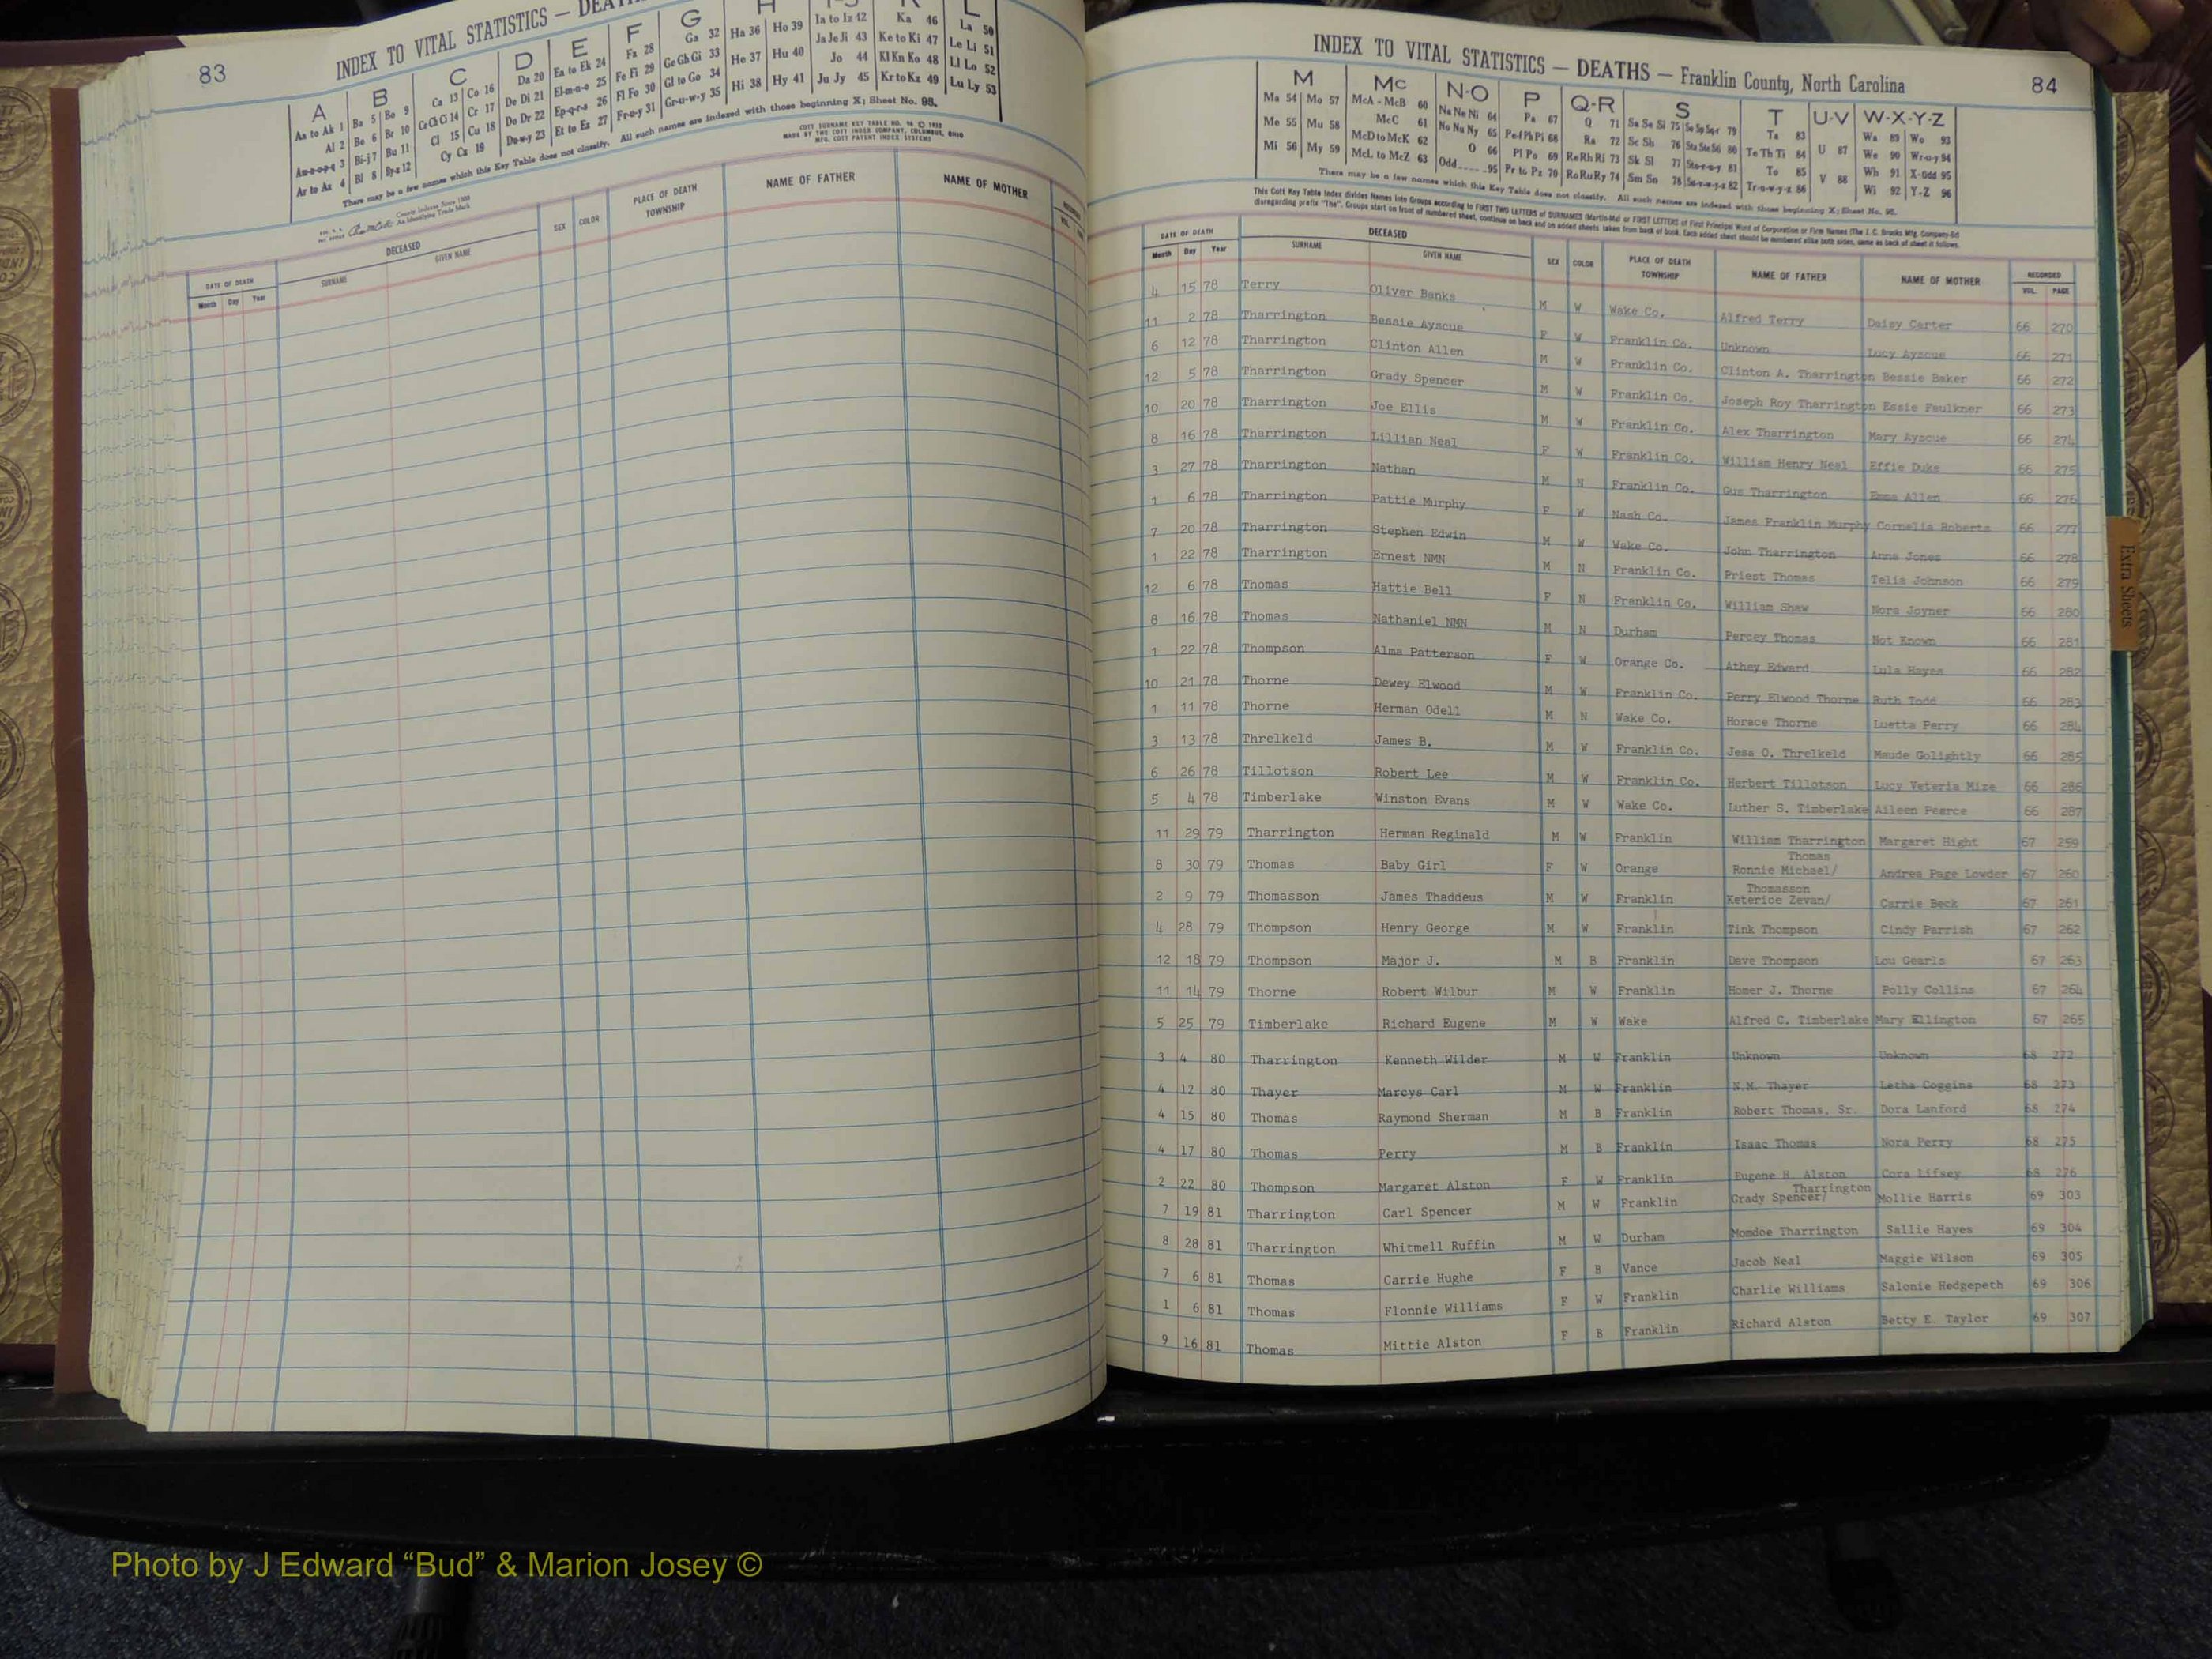 83
INDEX TO VITAL STATISTICS — DEATHS
A B C D E F G H I-J K L
Aa to Ak 1 Ba 5 Bo 9 Ca 13 Co 16 Da 20 Ea to Ek 24 Fa 28 Ga 32 Ha 36 Ho 39 Ia to Iz 42 Ka 46 La 50
Al 2 Be 6 Br 10 Ce Ch Ci 14 Cr 17 De Di 21 El-m-n-o 25 Fe Fi 29 Ge Gh Gi 33 He 37 Hu 40 Ja Je Ji 43 Ke to Ki 47 Le Li 51
Am-n-o-p-q 3 Bi-j 7 Bu 11 Cl 15 Cu 18 Do Dr 22 Ep-q-r-s 26 Fl Fo 30 Gl to Go 34 Hi 38 Hy 41 Jo 44 Kl Kn Ko 48 Ll Lo 52
Ar to Az 4 Bl 8 By-z 12 Cy Cz 19 Du-w-y 23 Et to Ez 27 Fr-u-y 31 Gr-u-w-y 35 Ju Jy 45 Kr to Kz 49 Lu Ly 53
There may be a few names which this Key Table does not classify. All such names are indexed with those beginning X; Sheet No. 95.
COTT SURNAME KEY TABLE NO. 96 © 1952
MADE BY THE COTT INDEX COMPANY, COLUMBUS, OHIO
MFG. COTT PATENT INDEX SYSTEMS
County Indexes Since 1888
An Identifying Trade Mark
DATE OF DEATH DECEASED SEX COLOR PLACE OF DEATH TOWNSHIP NAME OF FATHER NAME OF MOTHER
Month Day Year SURNAME GIVEN NAME
INDEX TO VITAL STATISTICS — DEATHS — Franklin County, North Carolina 84
M Mc N-O P Q-R S T U-V W-X-Y-Z
Ma 54 Mo 57 McA - McB 60 Na Ne Ni 64 Pa 67 Q 71 Sa Se Si 75 So Sp Sq-r 79 Ta 83 Wa 89 Wo 93
Me 55 Mu 58 McC 61 No Nu Ny 65 Pe-f Ph Pi 68 Ra 72 Sc Sh 76 Sta Ste Sti 80 Te Th Ti 84 U 87 We 90 Wr-u-y 94
Mi 56 My 59 McD to McK 62 O 66 Pl Po 69 Re Rh Ri 73 Sk Sl 77 Sto-r-u-y 81 To 85 V 88 Wh 91 X-Odd 95
McL to McZ 63 Odd 95 Pr to Pz 70 Ro Ru Ry 74 Sm Sn 78 Su-v-w-y-z 82 Tr-u-w-y-z 86 Wi 92 Y-Z 96
There may be a few names which this Key Table does not classify. All such names are indexed with those beginning X; Sheet No. 95.
This Cott Key Table Index divides Names into Groups according to FIRST TWO LETTERS of SURNAMES (Martin-Ma) or FIRST LETTERS of First Principal Word of Corporation or Firm Names (The J. C. Brooks Mfg. Company-Br)
disregarding prefix "The". Groups start on front of numbered sheet, continue on back and on added sheets taken from back of book. Each added sheet should be numbered alike both sides, same as back of sheet it follows.
DATE OF DEATH DECEASED SEX COLOR PLACE OF DEATH TOWNSHIP NAME OF FATHER NAME OF MOTHER RECORDED
Month Day Year SURNAME GIVEN NAME VOL. PAGE
4 15 78 Terry Oliver Banks M W Wake Co. Alfred Terry Daisy Carter 66 270
11 2 78 Tharrington Bessie Ayscue F W Franklin Co. Unknown Lucy Ayscue 66 271
6 12 78 Tharrington Clinton Allen M W Franklin Co. Clinton A. Tharrington Bessie Baker 66 272
12 5 78 Tharrington Grady Spencer M W Franklin Co. Joseph Roy Tharrington Essie Faulkner 66 273
10 20 78 Tharrington Joe Ellis M W Franklin Co. Alex Tharrington Mary Ayscue 66 274
8 16 78 Tharrington Lillian Neal F W Franklin Co. William Henry Neal Effie Duke 66 275
3 27 78 Tharrington Nathan M N Franklin Co. Gus Tharrington Emma Allen 66 276
1 6 78 Tharrington Pattie Murphy F W Nash Co. James Franklin Murphy Cornelia Roberts 66 277
7 20 78 Tharrington Stephen Edwin M W Wake Co. John Tharrington Anna Jones 66 278
1 22 78 Tharrington Ernest NMN M N Franklin Co. Priest Thomas Telia Johnson 66 279
12 6 78 Thomas Hattie Bell F N Franklin Co. William Shaw Nora Joyner 66 280
8 16 78 Thomas Nathaniel NMN M N Durham Percey Thomas Not Known 66 281
1 22 78 Thompson Alma Patterson F W Orange Co. Athey Edward Lula Hayes 66 282
10 21 78 Thorne Dewey Elwood M W Franklin Co. Perry Elwood Thorne Ruth Todd 66 283
1 11 78 Thorne Herman Odell M N Wake Co. Horace Thorne Luetta Perry 66 284
3 13 78 Threlkeld James B. M W Franklin Co. Jess O. Threlkeld Maude Golightly 66 285
6 26 78 Tillotson Robert Lee M W Franklin Co. Herbert Tillotson Lucy Veteria Mize 66 286
5 4 78 Timberlake Winston Evans M W Wake Co. Luther S. Timberlake Aileen Pearce 66 287
11 29 79 Tharrington Herman Reginald M W Franklin William Tharrington Margaret Hight 67 259
Thomas
8 30 79 Thomas Baby Girl F W Orange Ronnie Michael/ Andrea Page Lowder 67 260
Thomasson
2 9 79 Thomasson James Thaddeus M W Franklin Keterice Zevan/ Carrie Beck 67 261
4 28 79 Thompson Henry George M W Franklin Tink Thompson Cindy Parrish 67 262
12 18 79 Thompson Major J. M B Franklin Dave Thompson Lou Gearls 67 263
11 14 79 Thorne Robert Wilbur M W Franklin Homer J. Thorne Polly Collins 67 264
5 25 79 Timberlake Richard Eugene M W Wake Alfred C. Timberlake Mary Ellington 67 265
3 4 80 Tharrington Kenneth Wilder M W Franklin Unknown Unknown 68 272
4 12 80 Thayer Marcys Carl M W Franklin N.M. Thayer Letha Coggins 68 273
4 15 80 Thomas Raymond Sherman M B Franklin Robert Thomas, Sr. Dora Lanford 68 274
4 17 80 Thomas Perry M B Franklin Isaac Thomas Nora Perry 68 275
2 22 80 Thompson Margaret Alston F W Franklin Eugene H. Alston Cora Lifsey 68 276
Tharrington
7 19 81 Tharrington Carl Spencer M W Franklin Grady Spencer/ Mollie Harris 69 303
8 28 81 Tharrington Whitmell Ruffin M W Durham Momdoe Tharrington Sallie Hayes 69 304
7 6 81 Thomas Carrie Hughe F B Vance Jacob Neal Maggie Wilson 69 305
1 6 81 Thomas Flonnie Williams F W Franklin Charlie Williams Salonie Hedgepeth 69 306
9 16 81 Thomas Mittie Alston F B Franklin Richard Alston Betty E. Taylor 69 307
Extra Sheets
Photo by J Edward “Bud” & Marion Josey ©